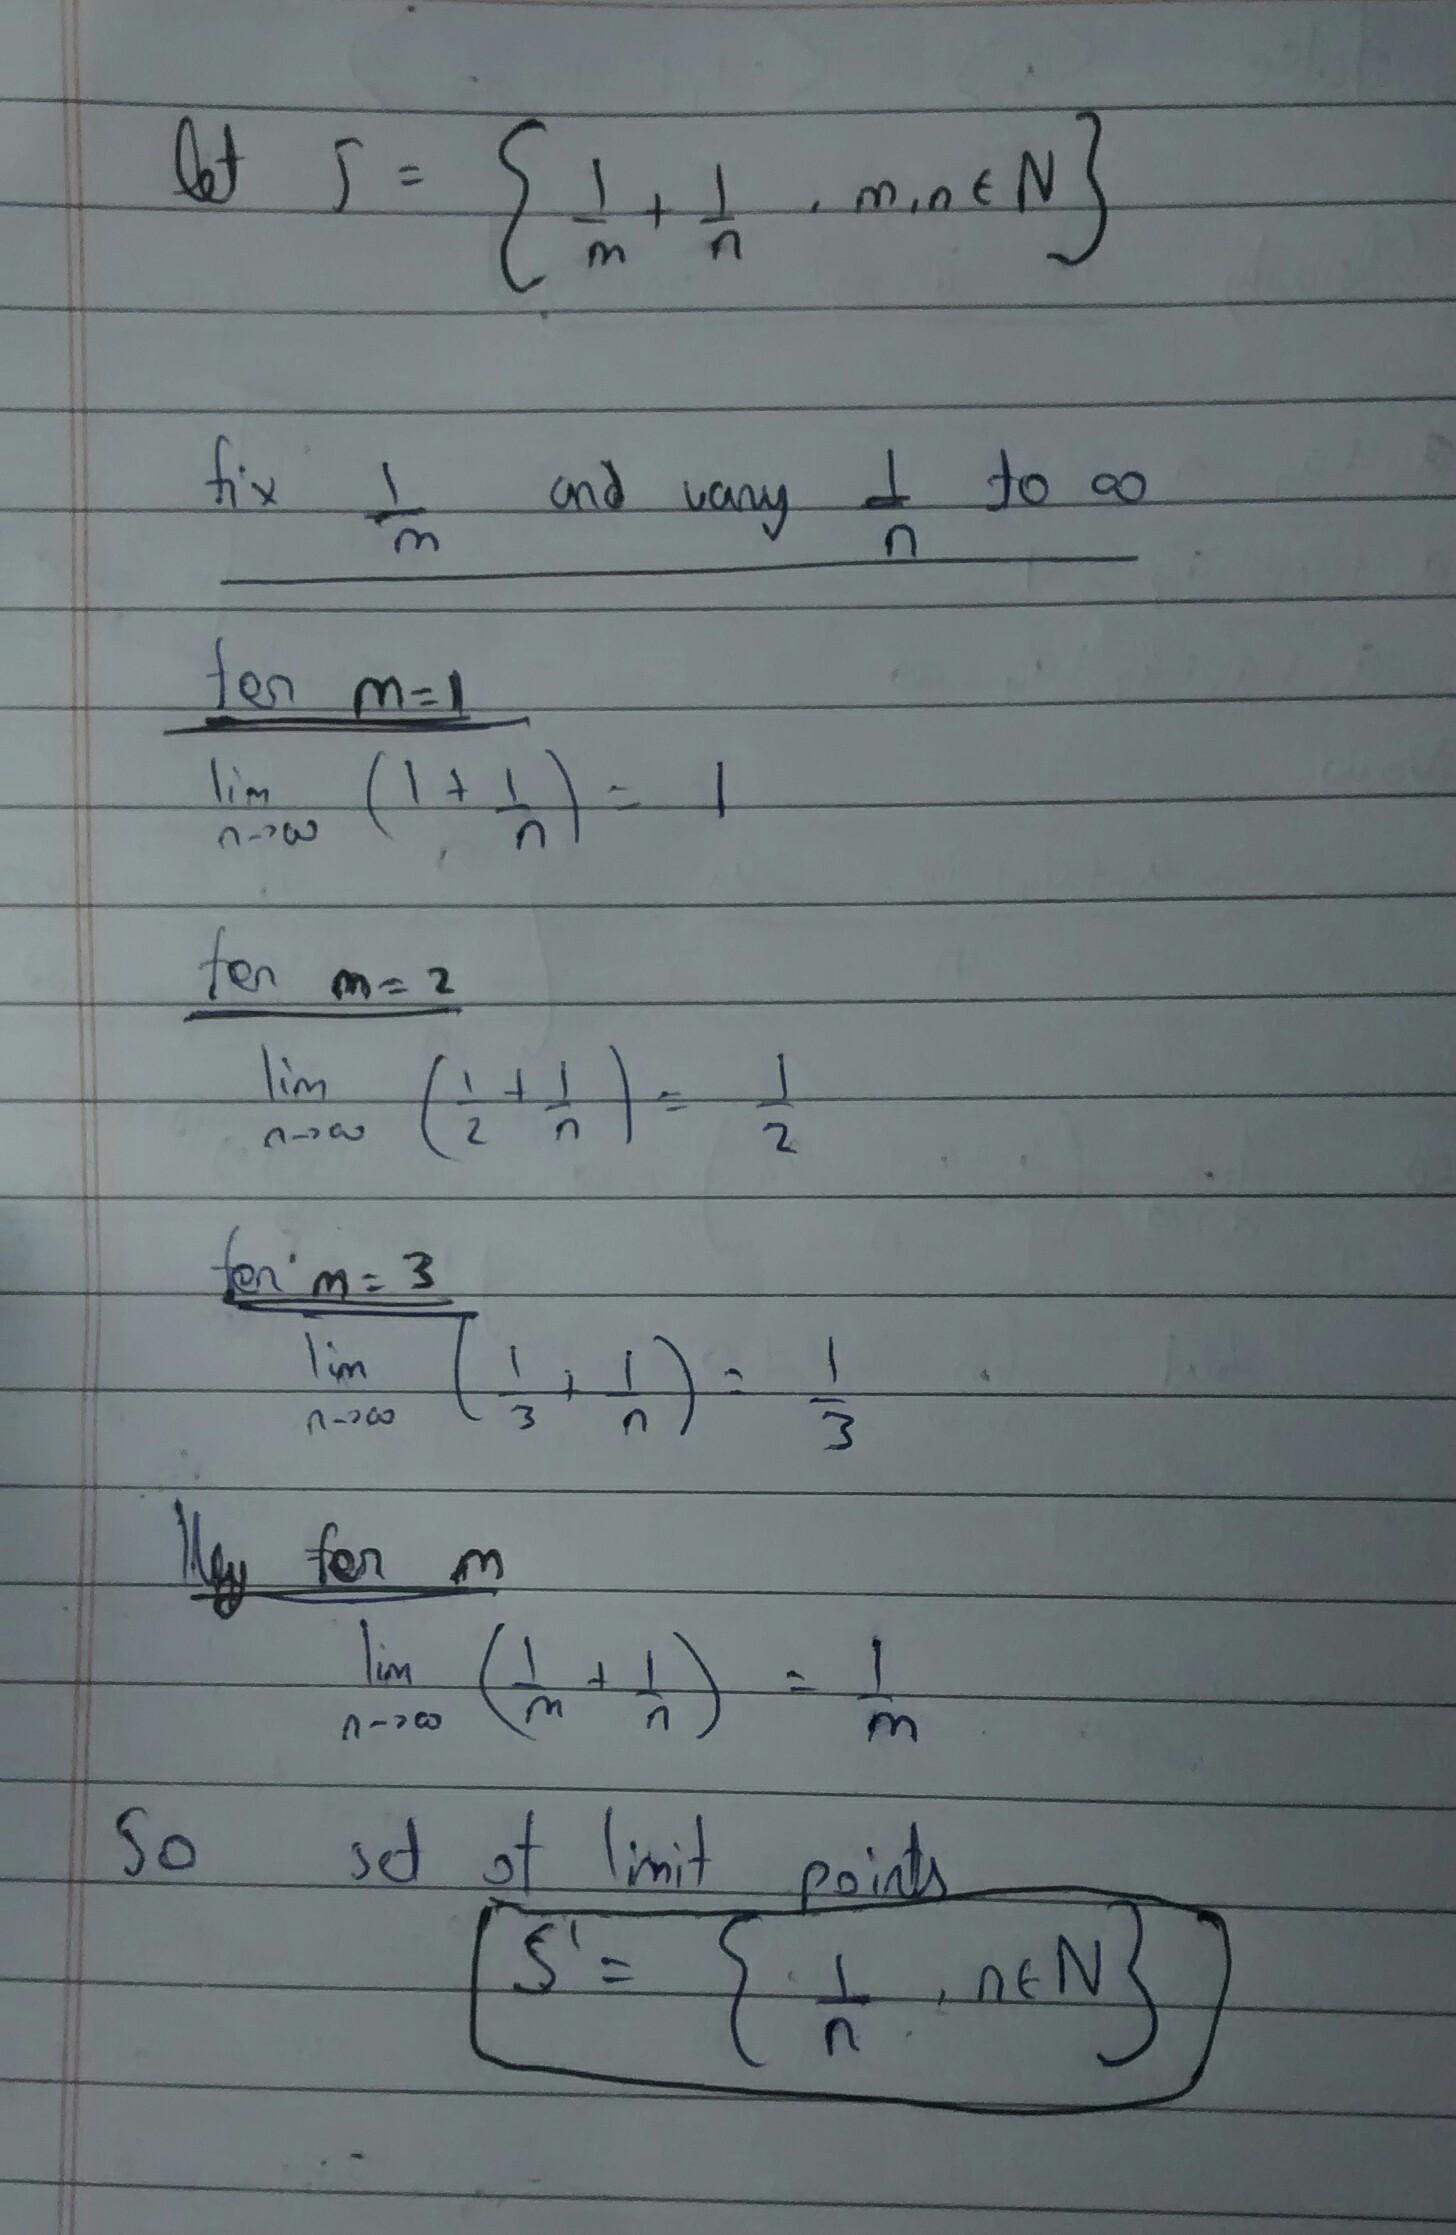 let S = { 1/m + 1/n , m,n ∈ N }
fix 1/m and vary 1/n to ∞
for m=1
lim n->∞ (1 + 1/n) = 1
for m=2
lim n->∞ (1/2 + 1/n) = 1/2
for m=3
lim n->∞ (1/3 + 1/n) = 1/3
lly for m
lim n->∞ (1/m + 1/n) = 1/m
So set of limit points
S' = { 1/n , n∈N }